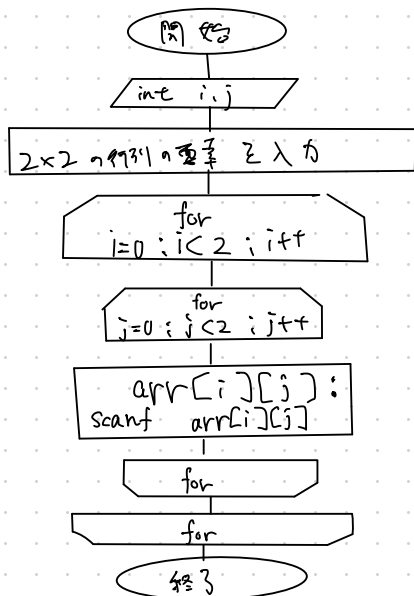 開始
int i,j
2×2の行列の要素を入力
for
i=0 ; i<2 ; i++
for
j=0 ; j<2 ; j++
arr[i][j] :
scanf arr[i][j]
for
for
終了